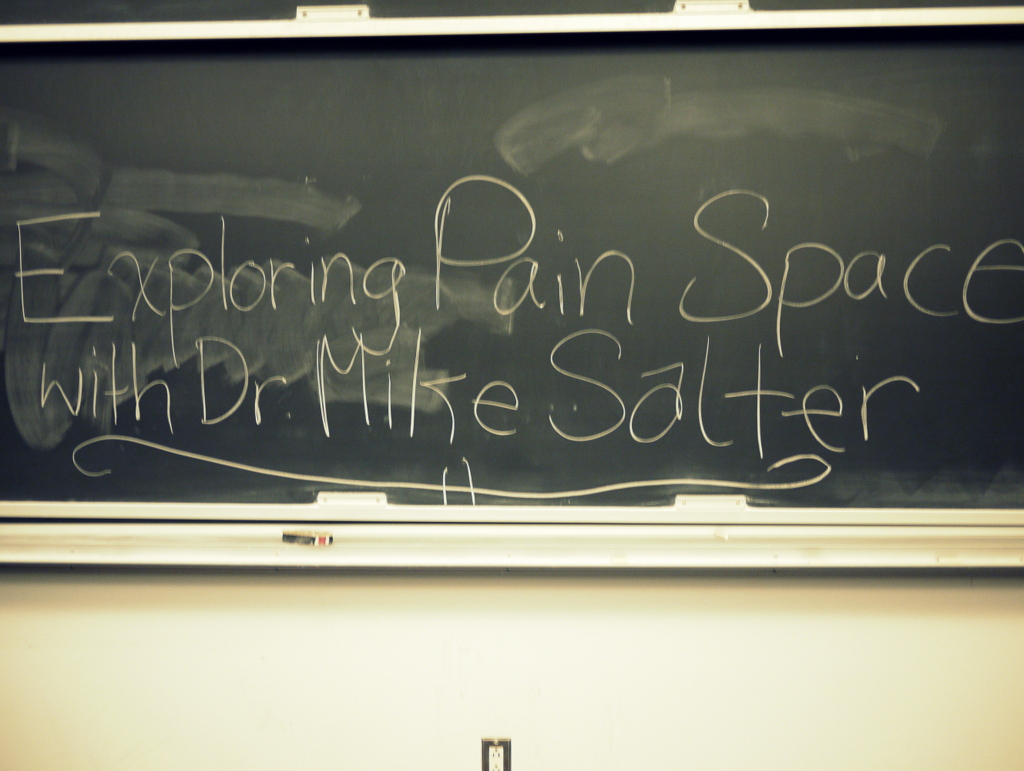 Exploring Pain Space
with Dr. Mike Salter